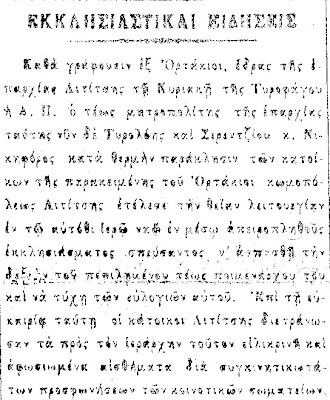 ΕΚΚΛΗΣΙΑΣΤΙΚΑΙ ΕΙΔΗΣΕΙΣ
Καθὰ γράφουσιν ἐξ Ὀρτάκιοϊ, ἕδρας τῆς ἐ-
παρχίας Λιτίτσης τῇ Κυριακῇ τῆς Τυροφάγου
ἡ Α. Π. ὁ τέως μητροπολίτης τῆς ἐπαρχίας
ταύτης νῦν δὲ Τυρολόης καὶ Σερεντζίου κ. Νι-
κηφόρος κατὰ θερμὴν παράκλησιν τῶν κατοί-
κων τῆς παρακειμένης τοῦ Ὀρτάκιοϊ κωμοπό-
λεως Λιτίτσης ἐτέλεσε τὴν θείαν λειτουργίαν
ἐν τῷ αὐτόθι ἱερῷ ναῷ ἐν μέσῳ ἀπειροπληθοῦς
ἐκκλησιάσματος σπεύσαντος ν' ἀσπασθῇ τὴν
δεξιὰν τοῦ πεφιλημένου τέως ποιμενάρχου του
καὶ νὰ τύχῃ τῶν εὐλογιῶν αὐτοῦ. Ἐπὶ τῇ εὐ-
καιρίᾳ ταύτῃ οἱ κάτοικοι Λιτίτσης διετράνω-
σαν τὰ πρὸς τὸν ἱεράρχην τοῦτον εἰλικρινῆ καὶ
ἀφωσιωμένα αἰσθήματα διὰ συγκινητικωτά-
των προσφωνήσεων τῶν κοινοτικῶν σωματείων.